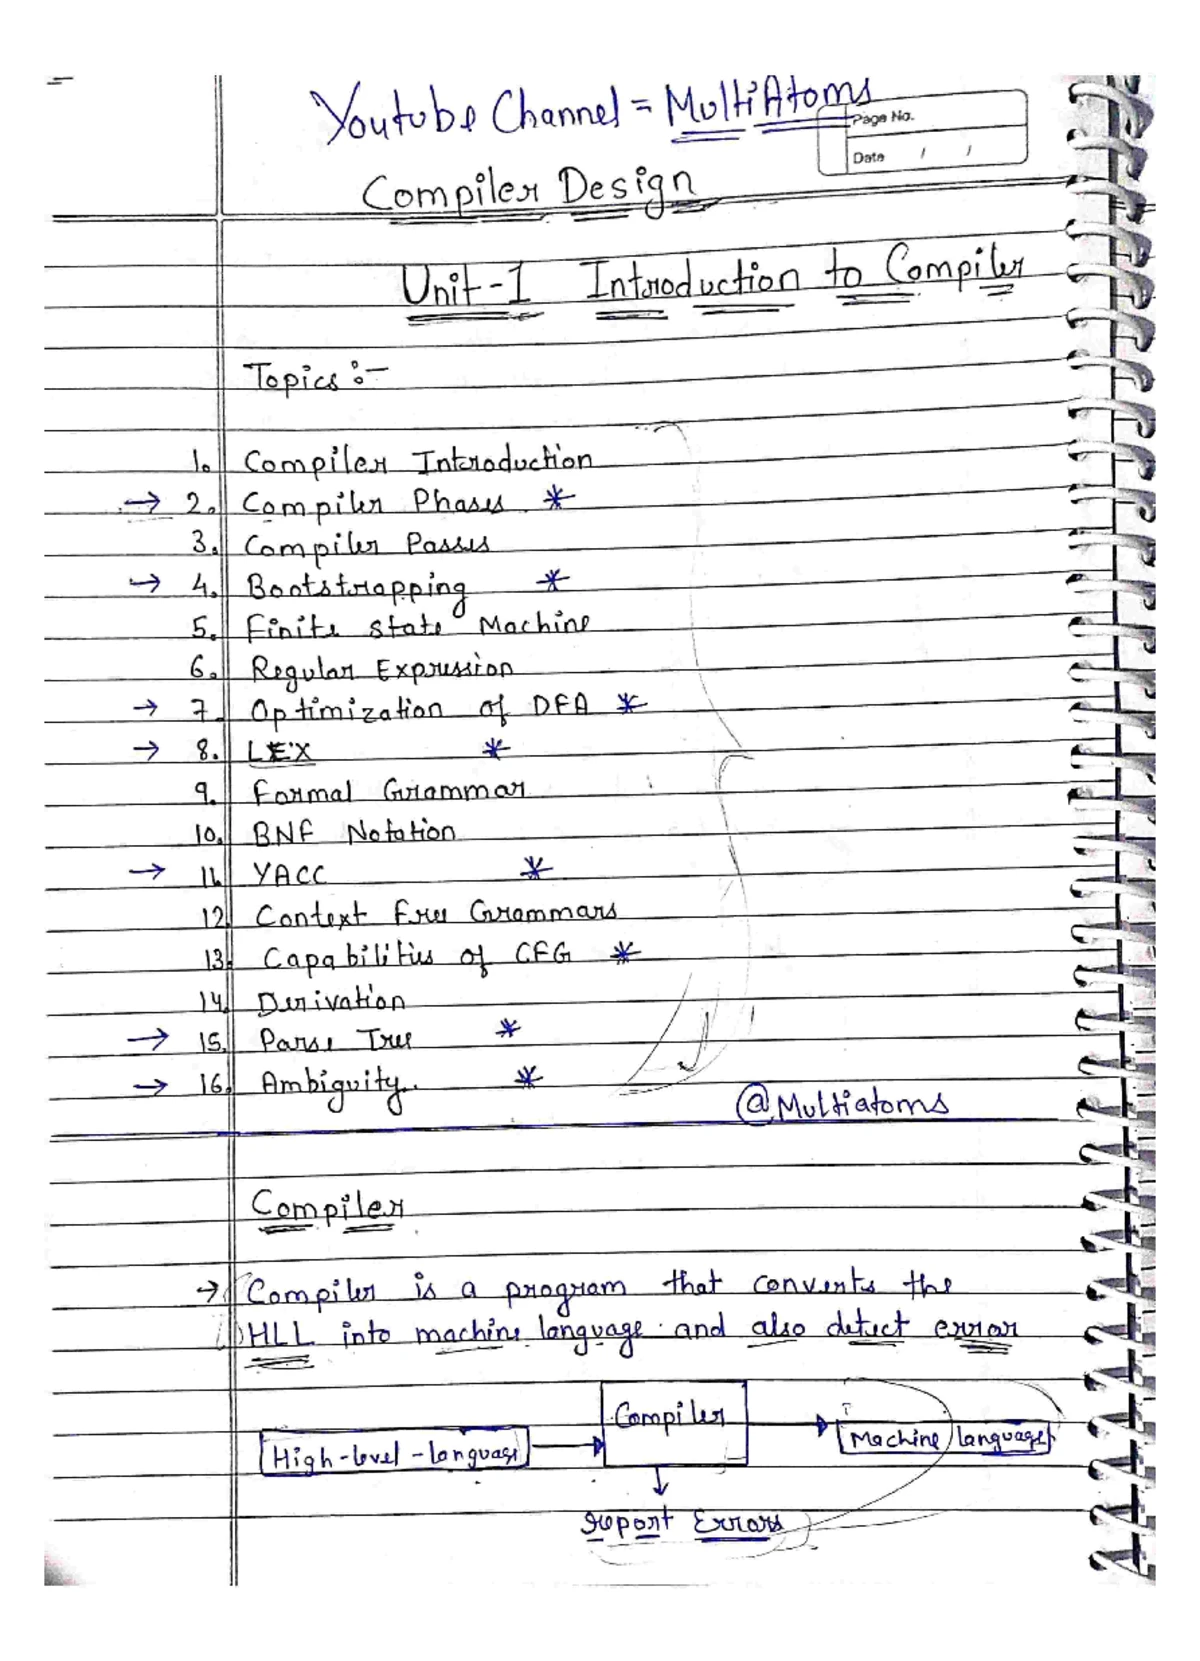 Youtube Channel = MultiAtoms
Page No.
Date / /
Compiler Design
Unit-1 Introduction to Compiler
Topics :-
1. Compiler Introduction
→ 2. Compiler Phases *
3. Compiler Passes
→ 4. Bootstrapping *
5. Finite state Machine
6. Regular Expression
→ 7. Optimization of DFA *
→ 8. LEX *
9. Formal Grammar
10. BNF Notation
→ 11. YACC *
12. Context Free Grammars
13. Capabilities of CFG *
14. Derivation
→ 15. Parse Tree *
→ 16. Ambiguity *
@Multiatoms
Compiler
→ Compiler is a program that converts the
HLL into machine language and also detect error
High-level-language → Compiler → Machine language
↓
report Errors